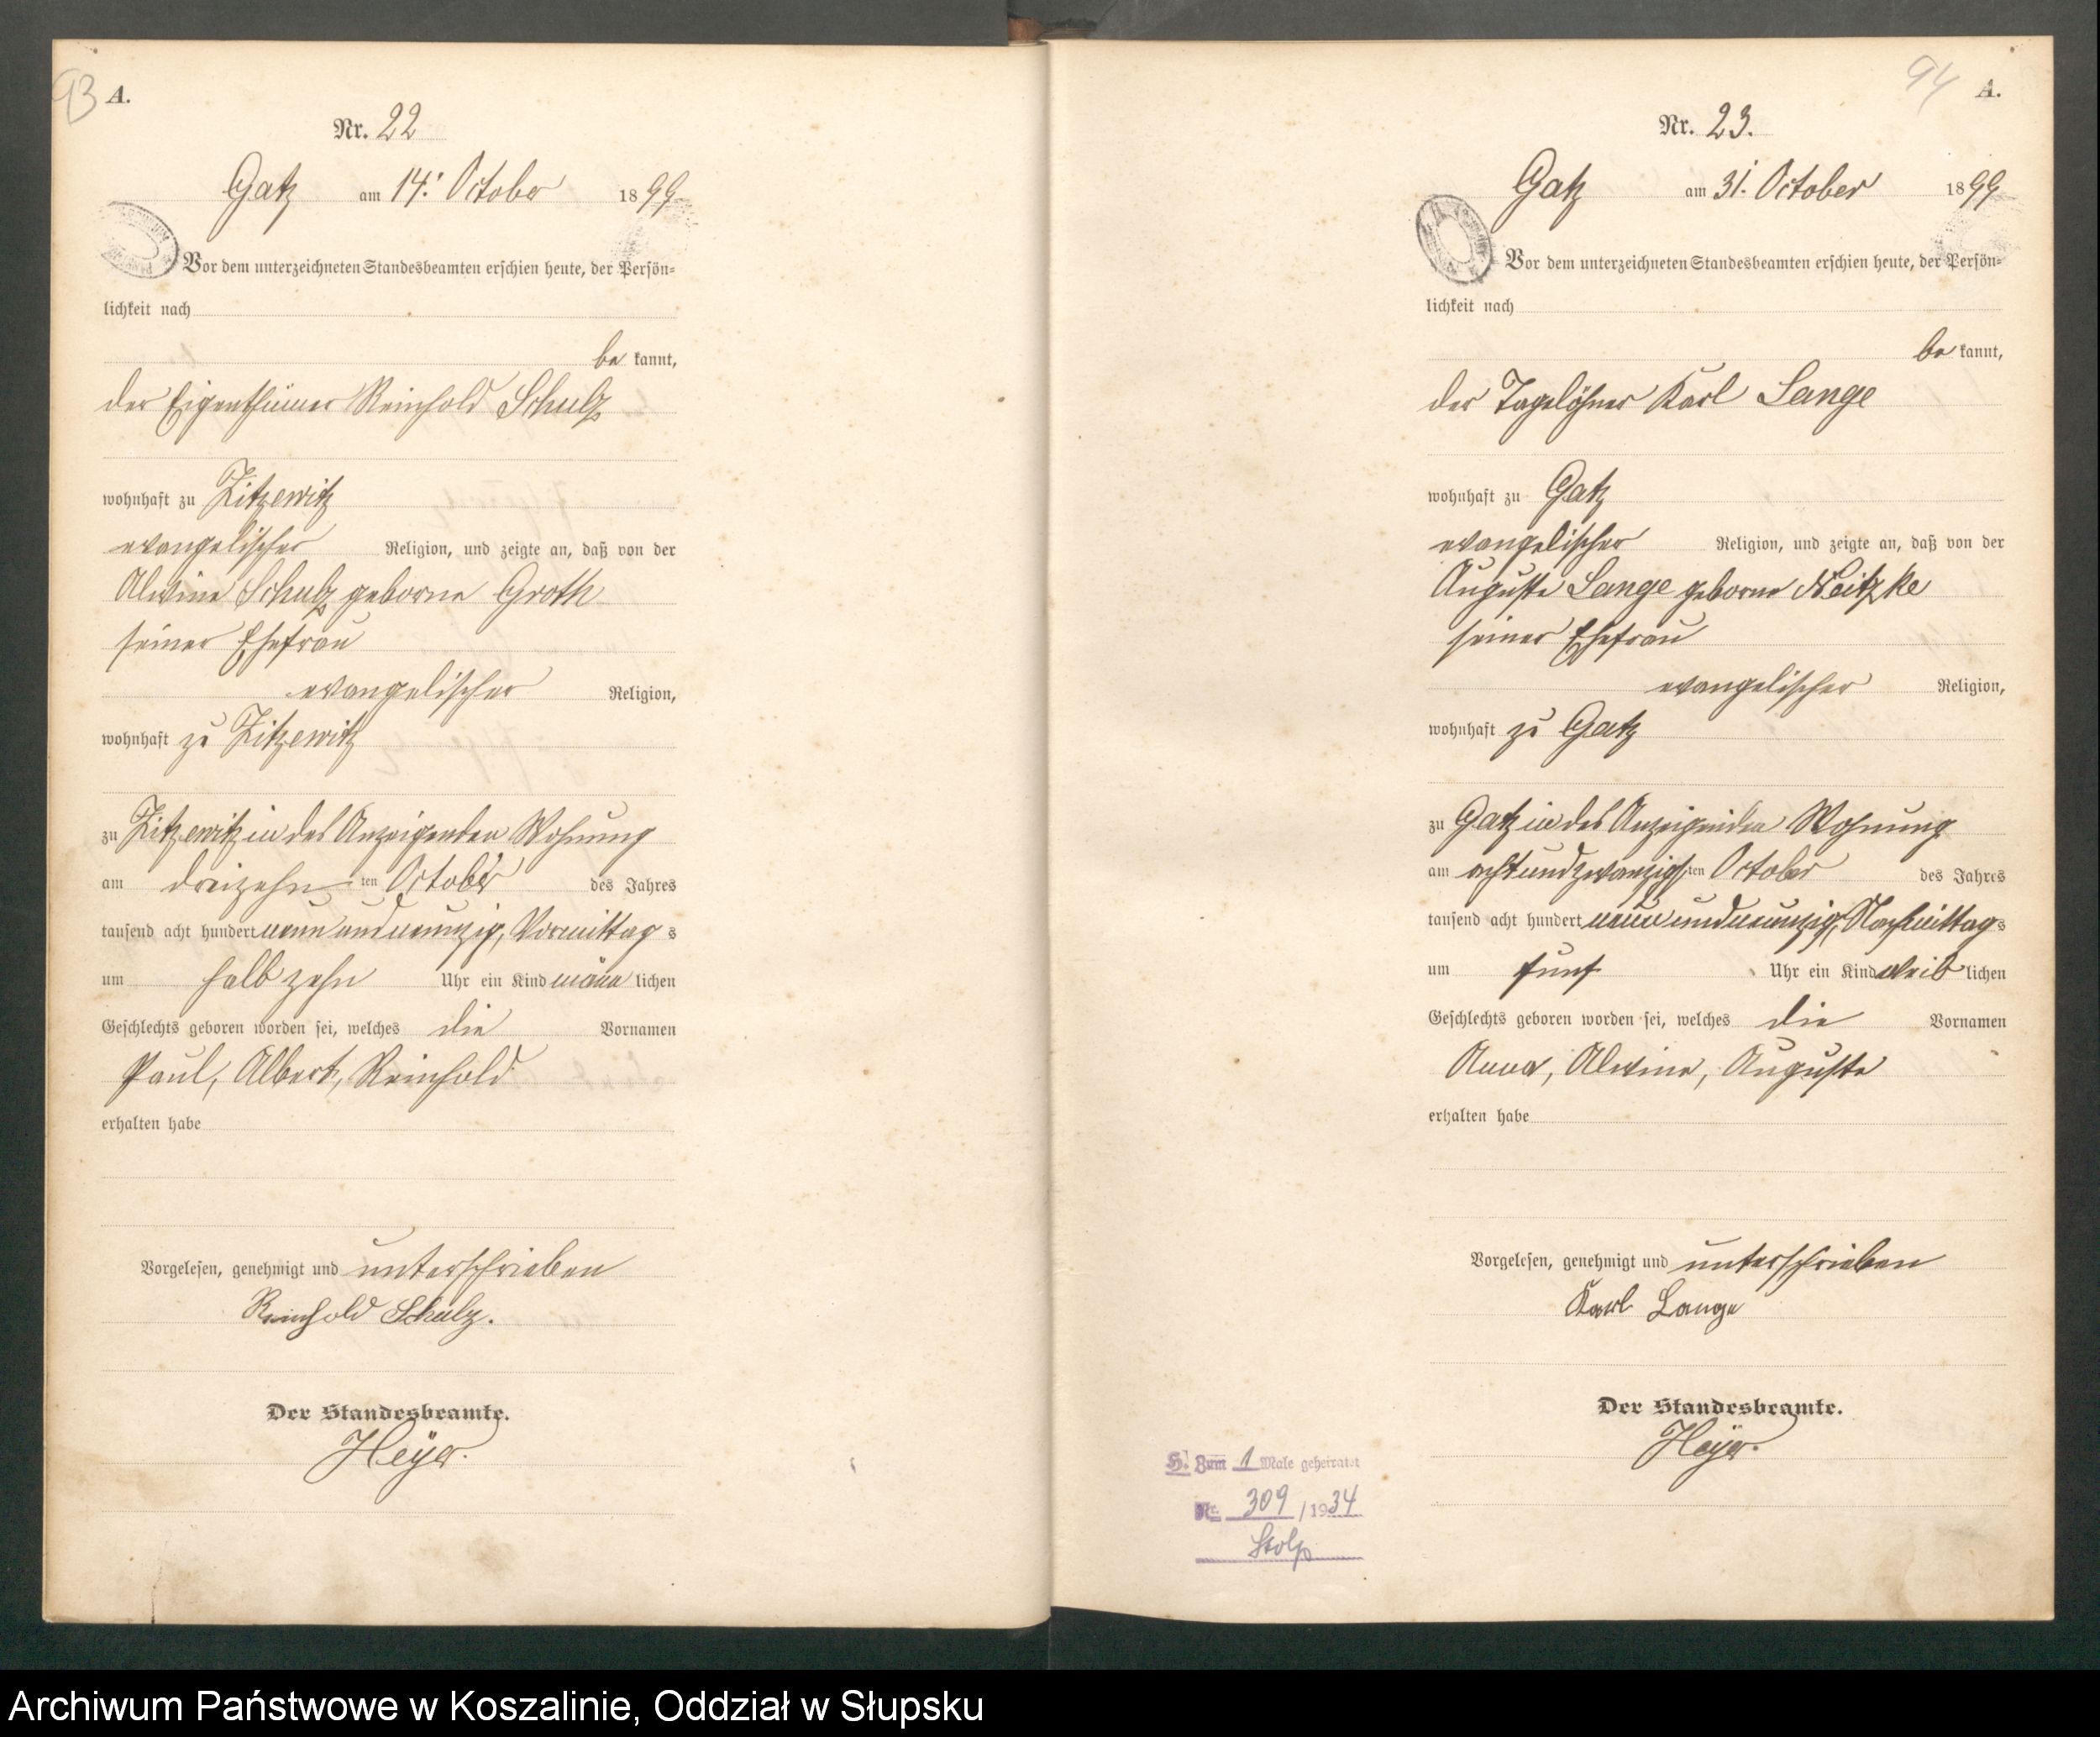 93 A.
Nr. 22
Gatz am 14. October 1899
Vor dem unterzeichneten Standesbeamten erschien heute, der Persön=
lichkeit nach
be kannt,
der Eigenthümer Reinhold Schulz
wohnhaft zu Zitzewitz
evangelischer Religion, und zeigte an, daß von der
Alwine Schulz geborne Groth
seiner Ehefrau
evangelischer Religion,
wohnhaft zu Zitzewitz
zu Zitzewitz in des Anzeigenden Wohnung
am dreizehn ten October des Jahres
tausend acht hundert neun und neunzig, Vormittag s
um halb zehn Uhr ein Kind männ lichen
Geschlechts geboren worden sei, welches die Vornamen
Paul, Albert, Reinhold
erhalten habe
Vorgelesen, genehmigt und unterschrieben
Reinhold Schulz.
Der Standesbeamte.
Heyer.
94 A.
Nr. 23.
Gatz am 31. October 1899
Vor dem unterzeichneten Standesbeamten erschien heute, der Persön=
lichkeit nach
be kannt,
der Tagelöhner Karl Lange
wohnhaft zu Gatz
evangelischer Religion, und zeigte an, daß von der
Auguste Lange geborne Neitzke
seiner Ehefrau
evangelischer Religion,
wohnhaft zu Gatz
zu Gatz in des Anzeigenden Wohnung
am achtundzwanzigsten October des Jahres
tausend acht hundert neun und neunzig, Nachmittag s
um fünf Uhr ein Kind weib lichen
Geschlechts geboren worden sei, welches die Vornamen
Anna, Alwine, Auguste
erhalten habe
Vorgelesen, genehmigt und unterschrieben
Karl Lange
Der Standesbeamte.
Heyer.
H. Zum 1 Male geheiratet
Nr. 309 / 1934
Stolp
Archiwum Państwowe w Koszalinie, Oddział w Słupsku